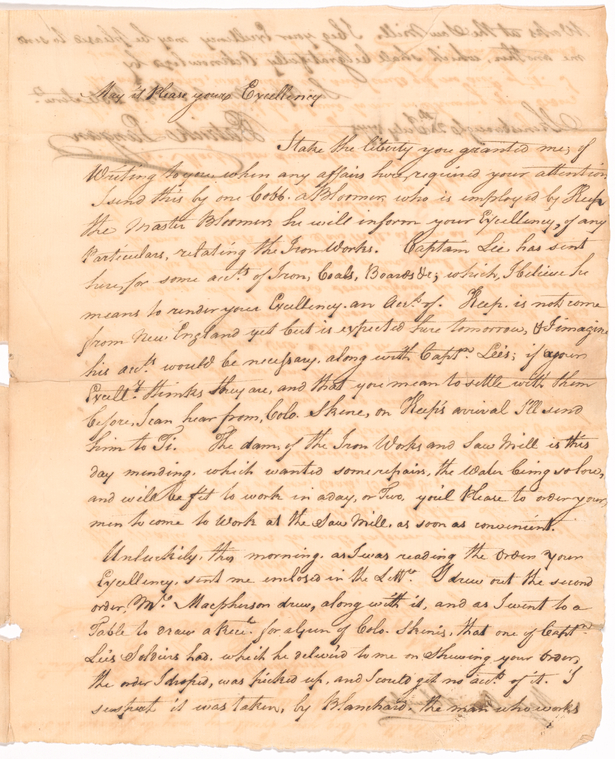 May it Please your Excellency
I take the liberty you granted me, of
Writing to you when any affairs here, required your attention,
I send this by one Cobb. a Bloomer, who is employed by Keep
the Master Bloomer, he will inform your Excellency, of any
Particulars, relating the Iron Works. Captain Lee, has sent
here, for some accts. of Iron, Coals, Boards &c; which, I believe he
means to render your Excellency an Acct. of. Keep. is not come
from New England yet but is expected here tomorrow, & I imagine
his accts. would be necessary, along with Captn. Lee's; if your
Excelly. thinks they are, and that you mean to settle with them
before, I can hear from, Colo. Skene, on Keep's arrival I'll send
him to Ti. The dam, of the Iron Works and Saw Mill is this
day mending. which wanted some repairs, the Water being so low,
and will be fit to work in a day, or Two, you'l Please to order your
men to come to Work at the Saw Mill, as soon as convenient.
Unluckily, this morning. as I was reading the order your
Excellency, sent me enclosed in the Lettr. I drew out the second
order, Mr. Macpherson drew, along with it, and as I went to a
Table to draw a Rect. for a Gun of Colo. Skene's, that one of Captn.
Lee's Soldiers had. which he deliver'd to me on Shewing your order,
the order I droped, was picked up, and I could get no acct. of it. I
suspect it was taken, by Blanchard. the man who works